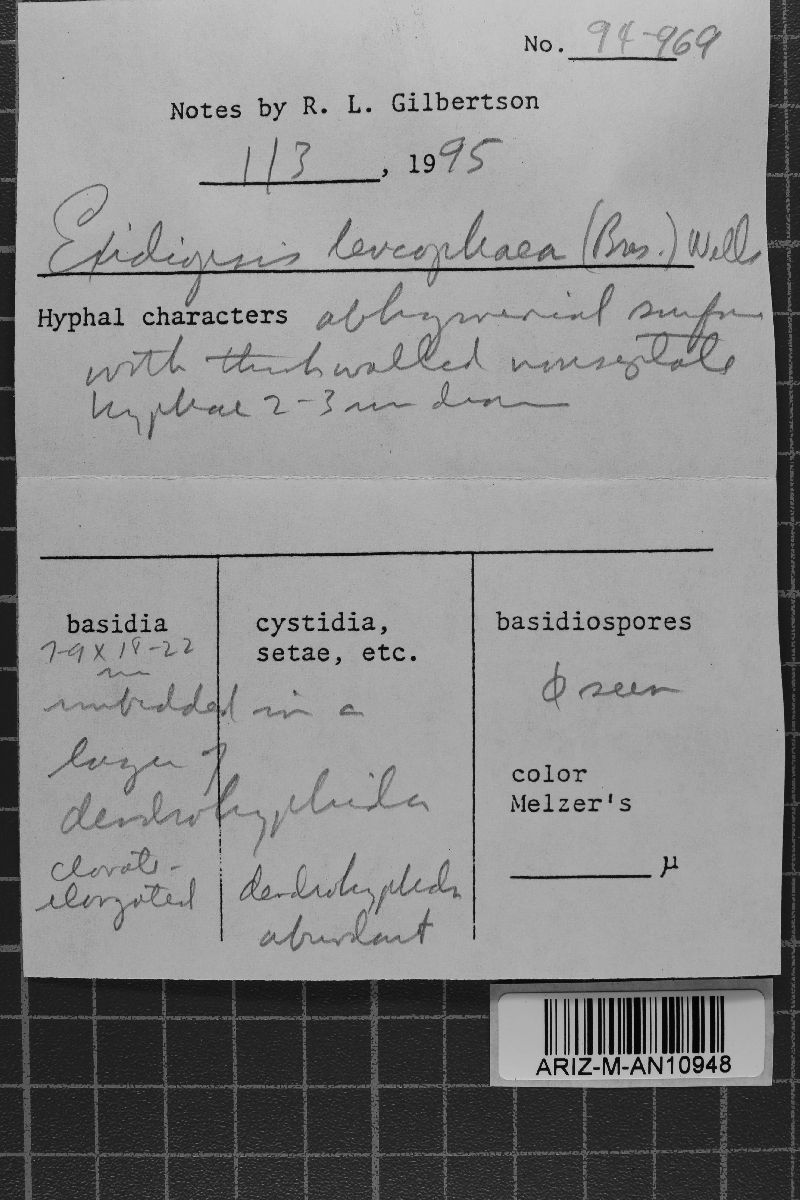 No. 94-969
Notes by R. L. Gilbertson
1/3, 1995
Exidiopsis leucophaea (Bres.) Wells
Hyphal characters abhymenial surface
with thick walled nonseptate
hyphae 2-3 um diam
basidia
7-9 x 18-22
um
cystidia,
setae, etc.
imbedded in a
layer of
dendrohyphidia
clavate-
elongated
dendrohyphidia
abundant
basidiospores
ϕ seen
color
Melzer's
µ
ARIZ-M-AN10948